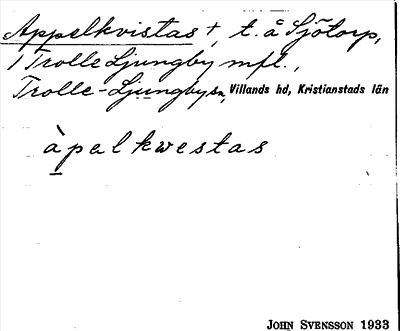 Appelkvistas †, t. å Sjötorp,
1 Trolle Ljungby mfl.,
Trolle-Ljungby sn, Villands hd, Kristianstads län
àpelkwestas
JOHN SVENSSON 1933